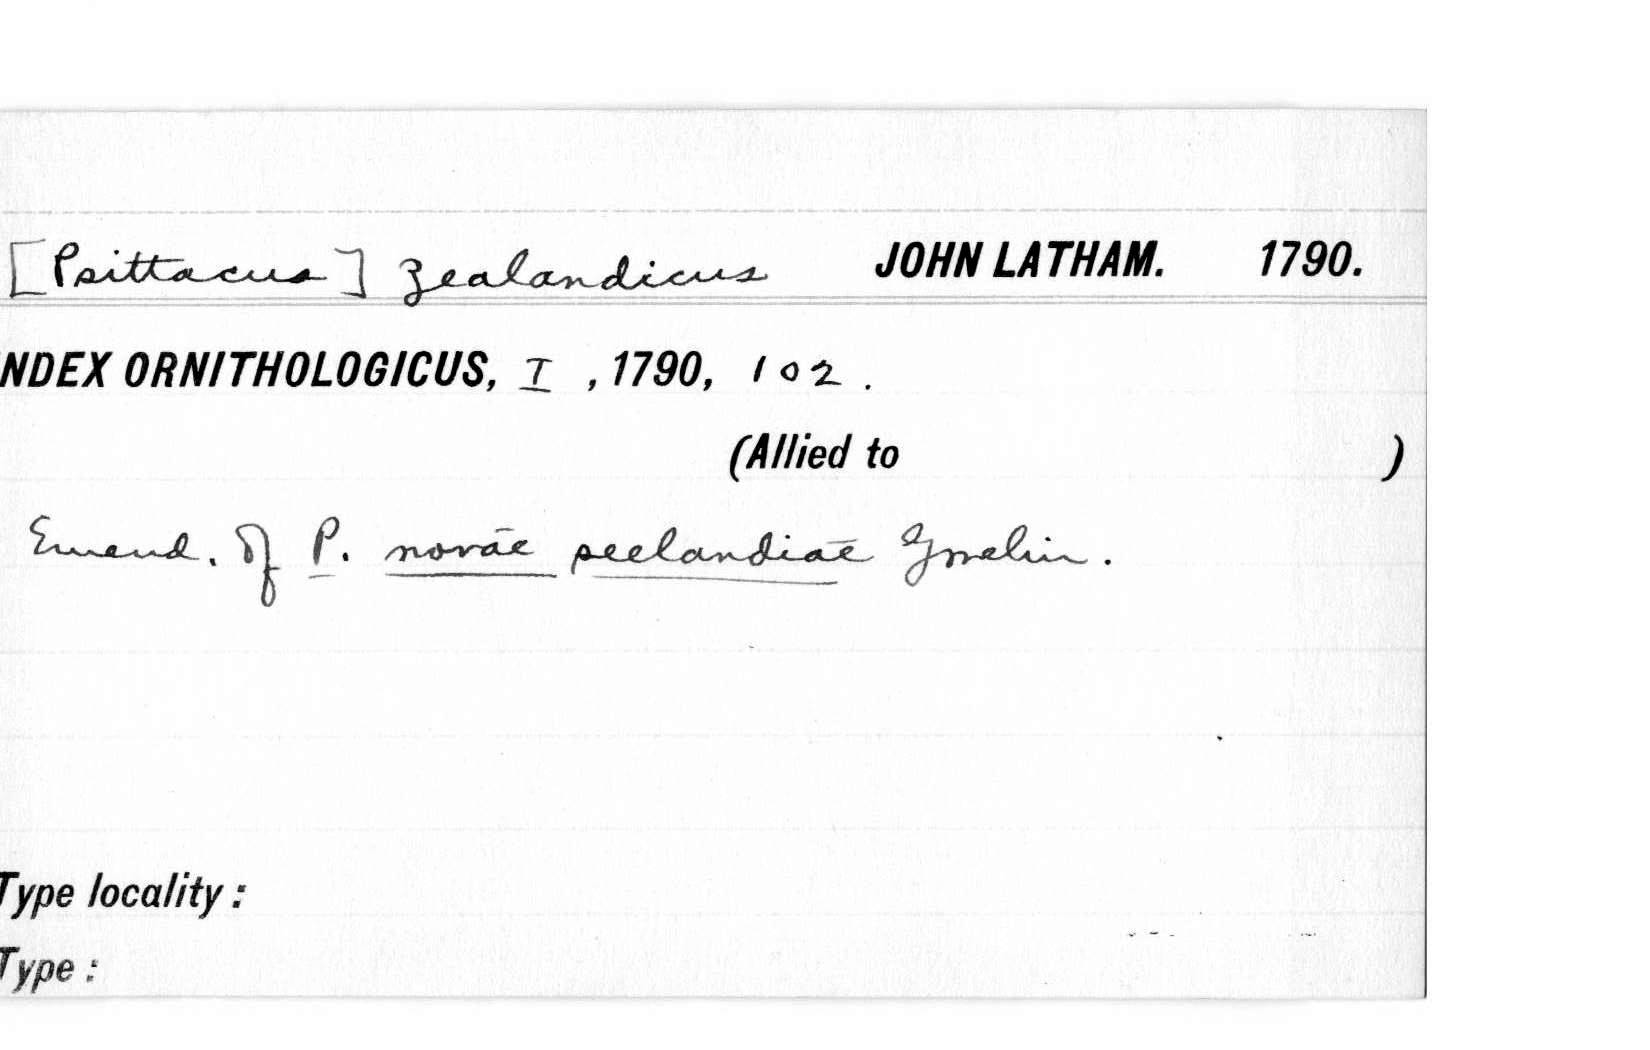 [Psittacus] Zealandicus JOHN LATHAM. 1790.
NDEX ORNITHOLOGICUS, I , 1790, 102 .
(Allied to )
Emend. of P. novae seelandiae Gmelin.
Type locality :
Type :